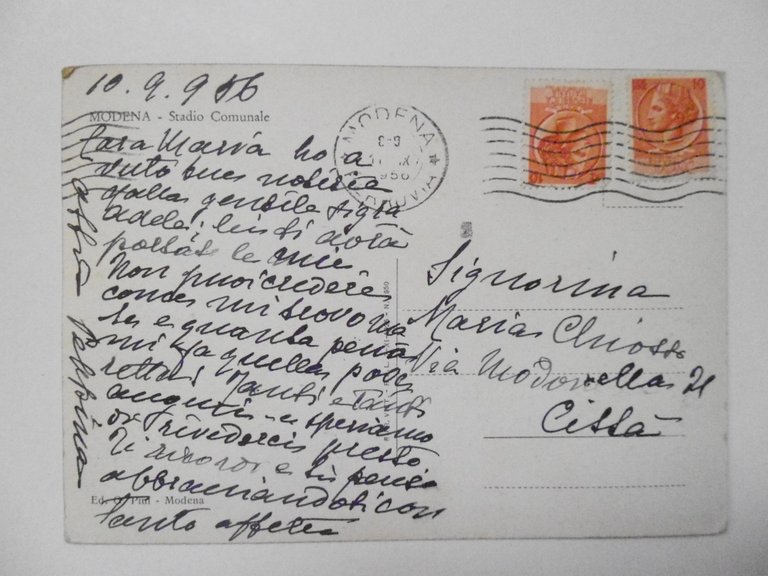 10.9.956
MODENA - Stadio Comunale
Cara Maria ho a
vuto tues notizie
dalla gentile sig.ra
Adele; lei ti avrà
portato le mie
Non puoi credere
come mi trovo ma
le e quanta pena
mi fa quella
Tanti e tanti
auguri e speriamo
di rivederci presto
Ti ricordo e ti penso
abbracciandoti con
tanto affetto
Ed. G. Pini - Modena
MODENA
8-9
IX
1956
Signorina
Maria Chiossi
Via Modonella 21
Città